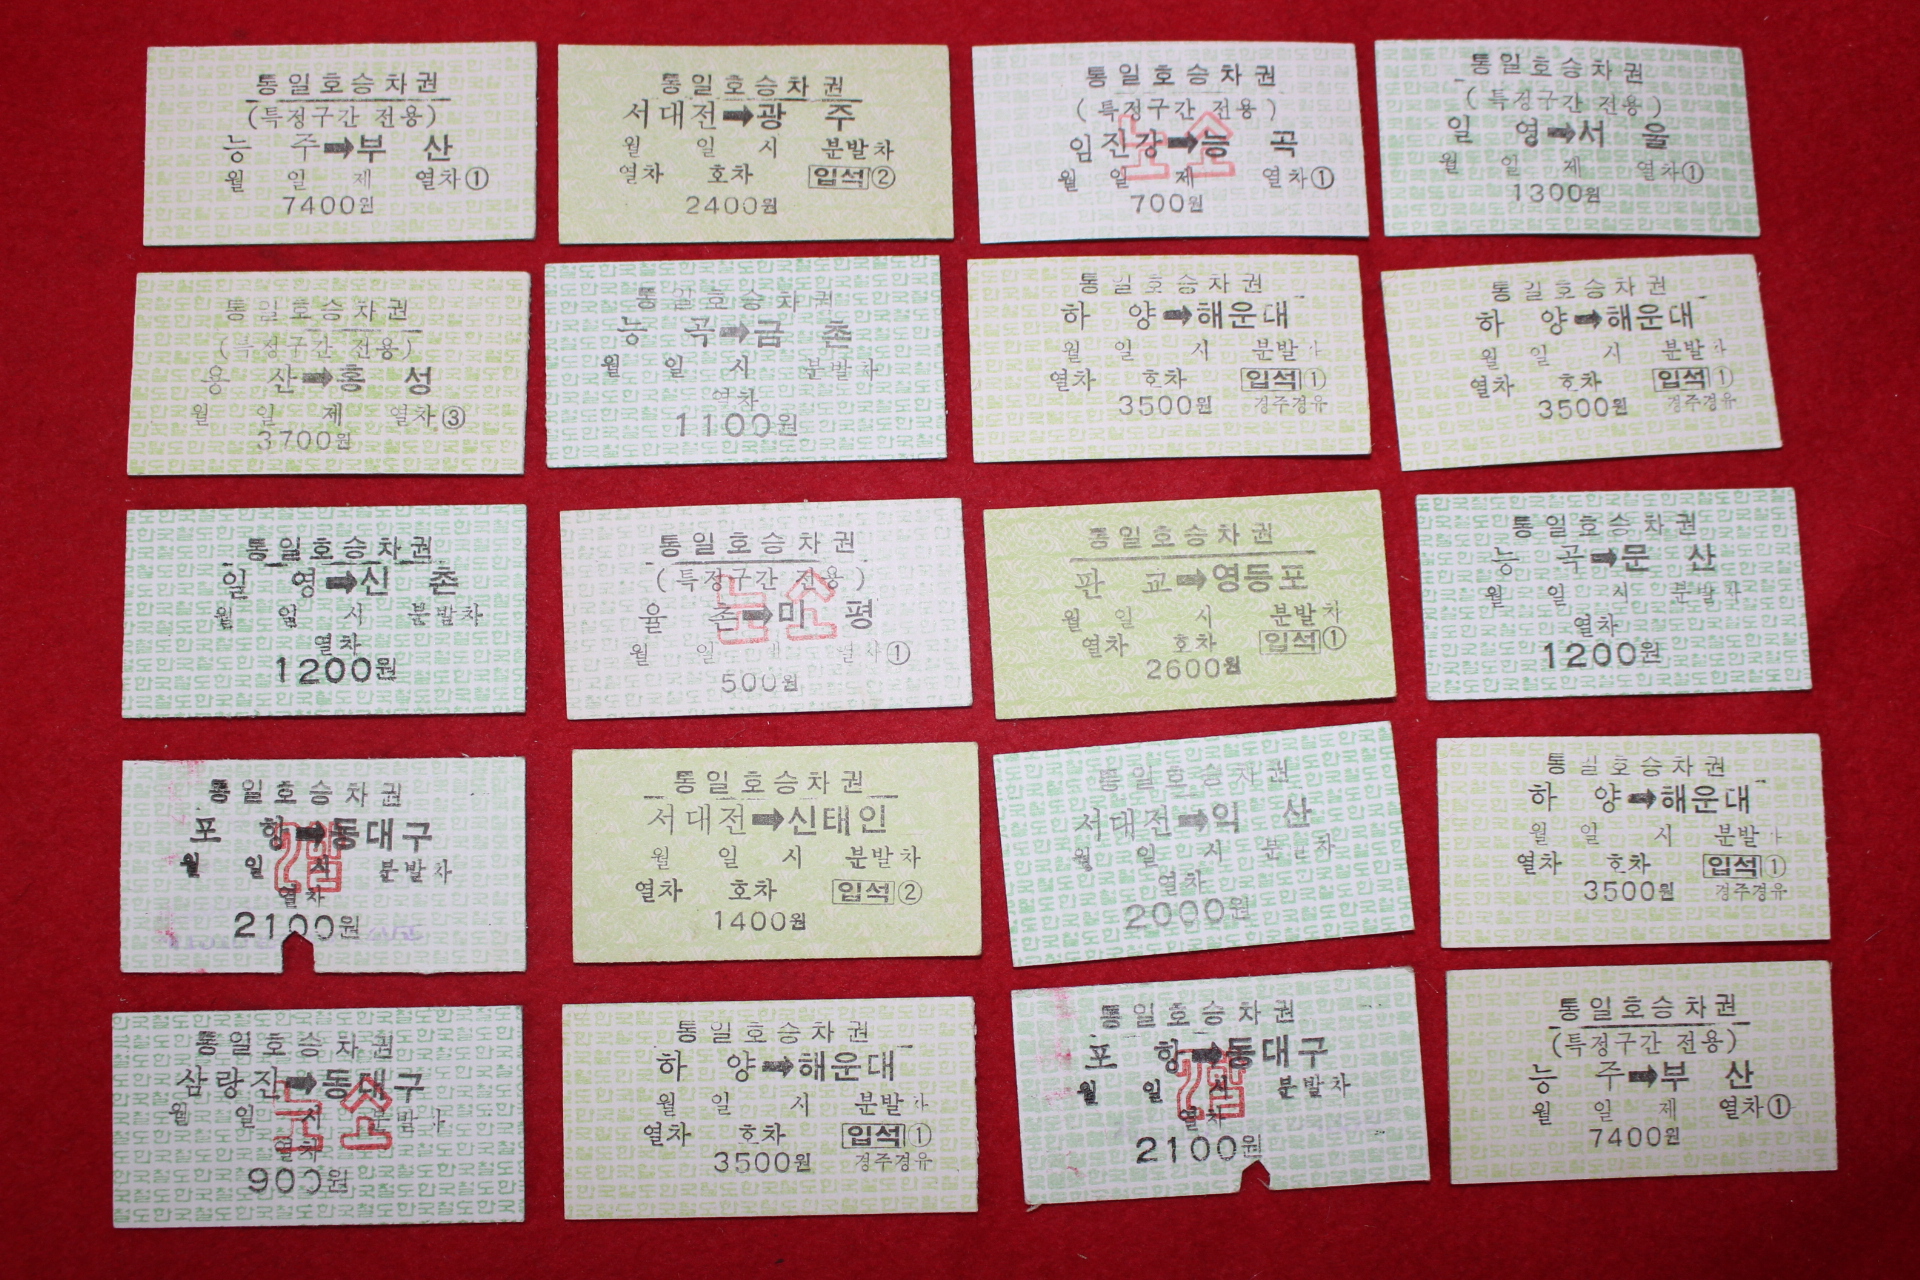 통일호승차권
(특정구간 전용)
능 주➡부 산
월 일 제 열차①
7400원
통일호승차권
서대전➡광 주
월 일 시 분발차
열차 호차 입석②
2400원
통일호승차권
(특정구간 전용)
노소
임진강➡능 곡
월 일 제 열차①
700원
통일호승차권
(특정구간 전용)
일 영➡서 울
월 일 제 열차①
1300원
통일호승차권
(특정구간 전용)
용 산➡홍 성
월 일 제 열차③
3700원
통일호승차권
능 곡➡금 촌
월 일 시 분발차
열차
1100원
통일호승차권
하 양➡해운대
월 일 시 분발차
열차 호차 입석①
3500원 경주경유
통일호승차권
하 양➡해운대
월 일 시 분발차
열차 호차 입석①
3500원 경주경유
통일호승차권
일 영➡신 촌
월 일 시 분발차
열차
1200원
통일호승차권
(특정구간 전용)
노소
율 촌➡미 평
월 일 제 열차①
500원
통일호승차권
판 교➡영등포
월 일 시 분발차
열차 호차 입석①
2600원
통일호승차권
능 곡➡문 산
월 일 시 분발차
열차
1200원
통일호승차권
포 항➡동대구
월 일 시 분발차
열차
2100원
통일호승차권
서대전➡신태인
월 일 시 분발차
열차 호차 입석②
1400원
통일호승차권
서대전➡익 산
월 일 시 분발차
열차
2000원
통일호승차권
하 양➡해운대
월 일 시 분발차
열차 호차 입석①
3500원 경주경유
통일호승차권
삼랑진➡동대구
노소
월 일 시 분발차
열차
900원
통일호승차권
하 양➡해운대
월 일 시 분발차
열차 호차 입석①
3500원 경주경유
통일호승차권
포 항➡동대구
월 일 시 분발차
열차
2100원
통일호승차권
(특정구간 전용)
능 주➡부 산
월 일 제 열차①
7400원